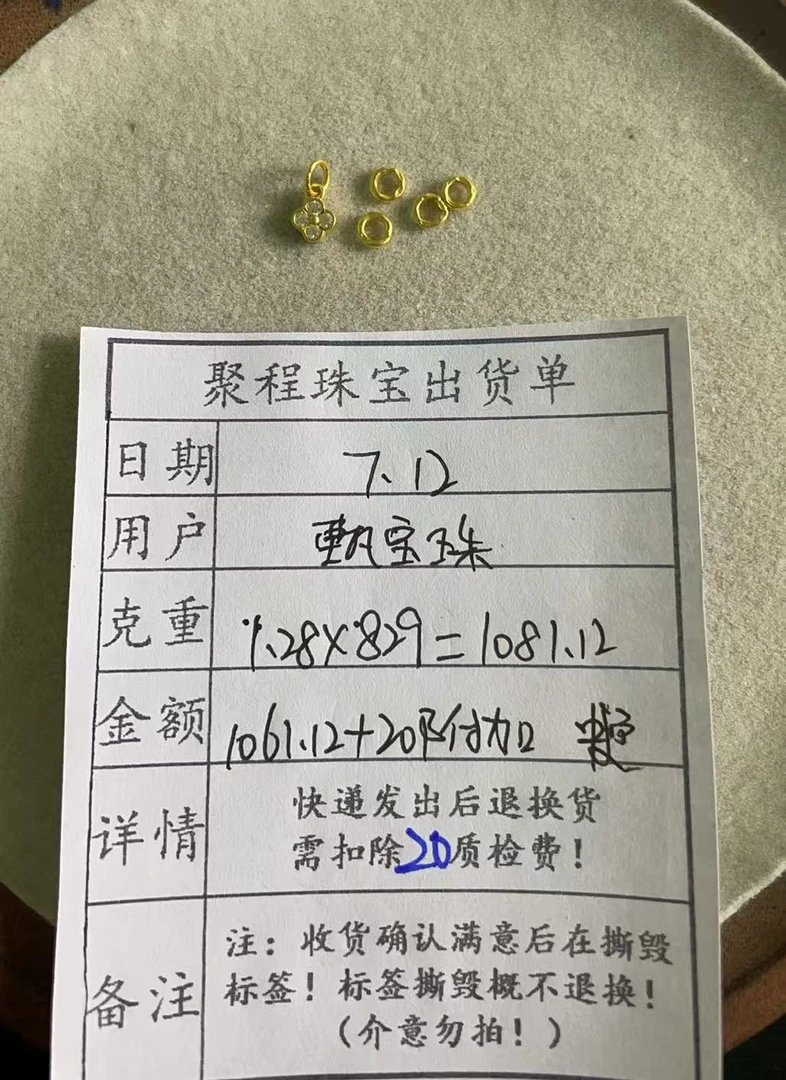 聚程珠宝出货单
日期 7.12
用户 甄宝珠
克重 1.28×829=1081.12
金额 1061.12+20附加
详情 快递发出后退换货
需扣除20质检费!
备注 注:收货确认满意后在撕毁
标签!标签撕毁概不退换!
(介意勿拍!)